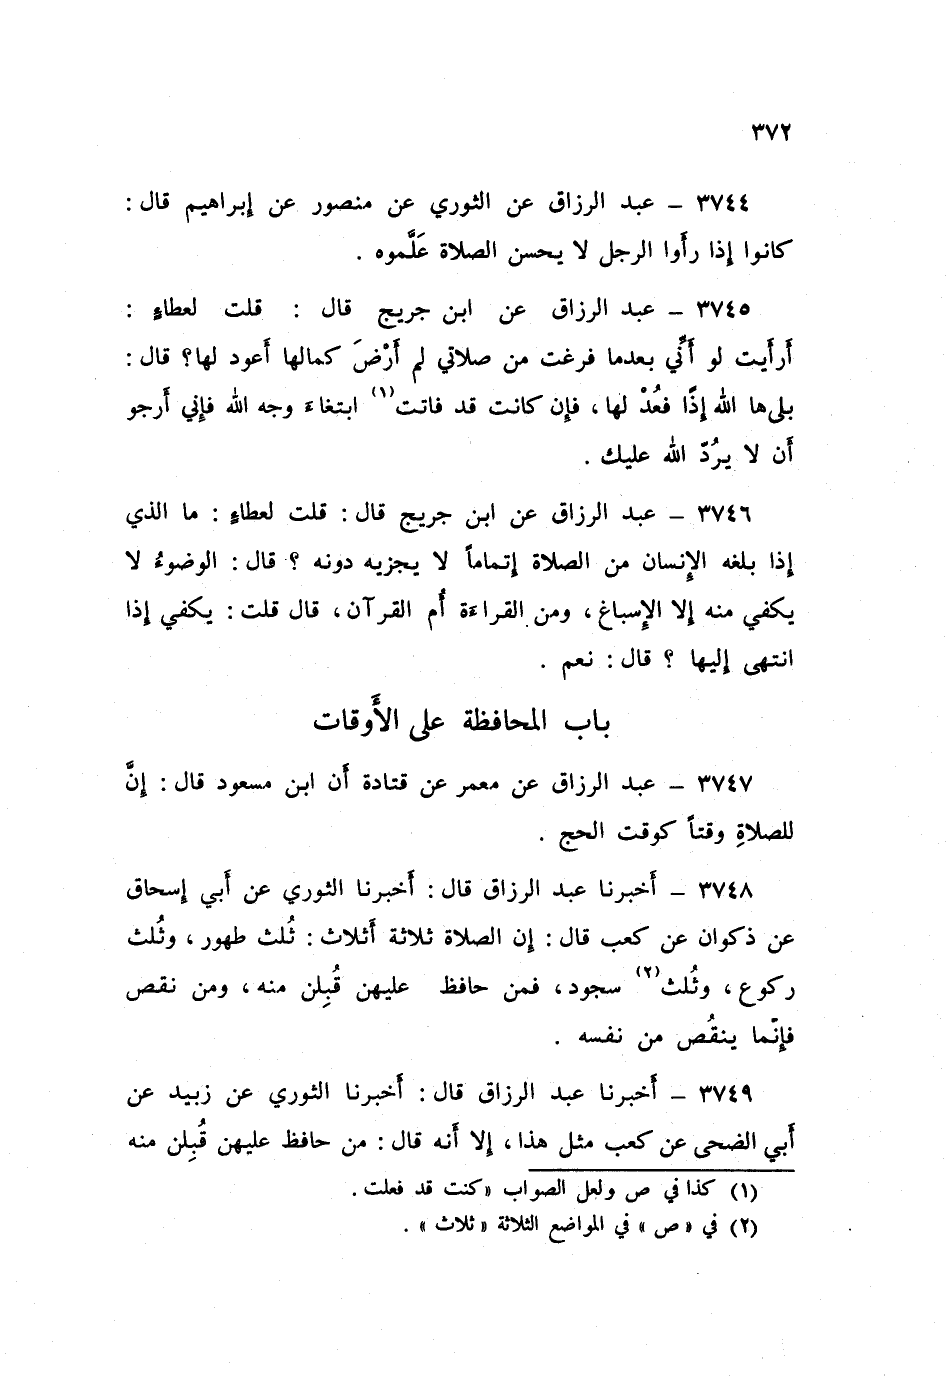 ٣٧٢
٣٧٤٤ – عبد الرزاق عن الثوري عن منصور عن إبراهيم قال :
كانوا إذا رأَوا الرجل لا يحسن الصلاة عَلَّموه .
٣٧٤٥ – عبد الرزاق عن ابن جريج قال : قلت لعطاءٍ :
أَرأَيت لو أَنِّي بعدما فرغت من صلاتي لم أَرْضَ كمالها أَعود لها؟ قال :
بلى ها الله إذًا فعُدْ لها ، فإن كانت قد فاتت(١) ابتغاءَ وجه الله فإني أَرجو
أَن لا يرُدّ الله عليك .
٣٧٤٦ – عبد الرزاق عن ابن جريج قال : قلت لعطاءٍ : ما الذي
إذا بلغه الإنسان من الصلاة إتماماً لا يجزيه دونه ؟ قال : الوضوءُ لا
يكفي منه إلا الإسباغ ، ومن القراءة أُم القرآن ، قال قلت : يكفي إذا
انتهى إليها ؟ قال : نعم .
باب المحافظة على الأَوقات
٣٧٤٧ – عبد الرزاق عن معمر عن قتادة أن ابن مسعود قال : إنَّ
للصلاةِ وقتاً كوقت الحج .
٣٧٤٨ – أَخبرنا عبد الرزاق قال : أَخبرنا الثوري عن أَبي إسحاق
عن ذكوان عن كعب قال : إن الصلاة ثلاثة أَثلاث : ثُلث طهور ، وثُلث
ركوع ، وثُلث(٢) سجود ، فمن حافظ عليهن قُبِلن منه ، ومن نقص
فإنّما ينقُص من نفسه .
٣٧٤٩ – أَخبرنا عبد الرزاق قال : أَخبرنا الثوري عن زبيد عن
أَبي الضحى عن كعب مثل هذا ، إلا أَنه قال : من حافظ عليهن قُبِلن منه
(١) كذا في ص ولعل الصواب «كنت قد فعلت .
(٢) في « ص » في المواضع الثلاثة « ثلاث » .